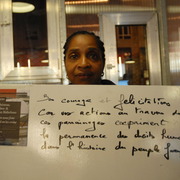 courage et félicitations
Car vos actions au travers de
ces parrainages expriment
la permanence des droits humains
dans l'histoire du peuple